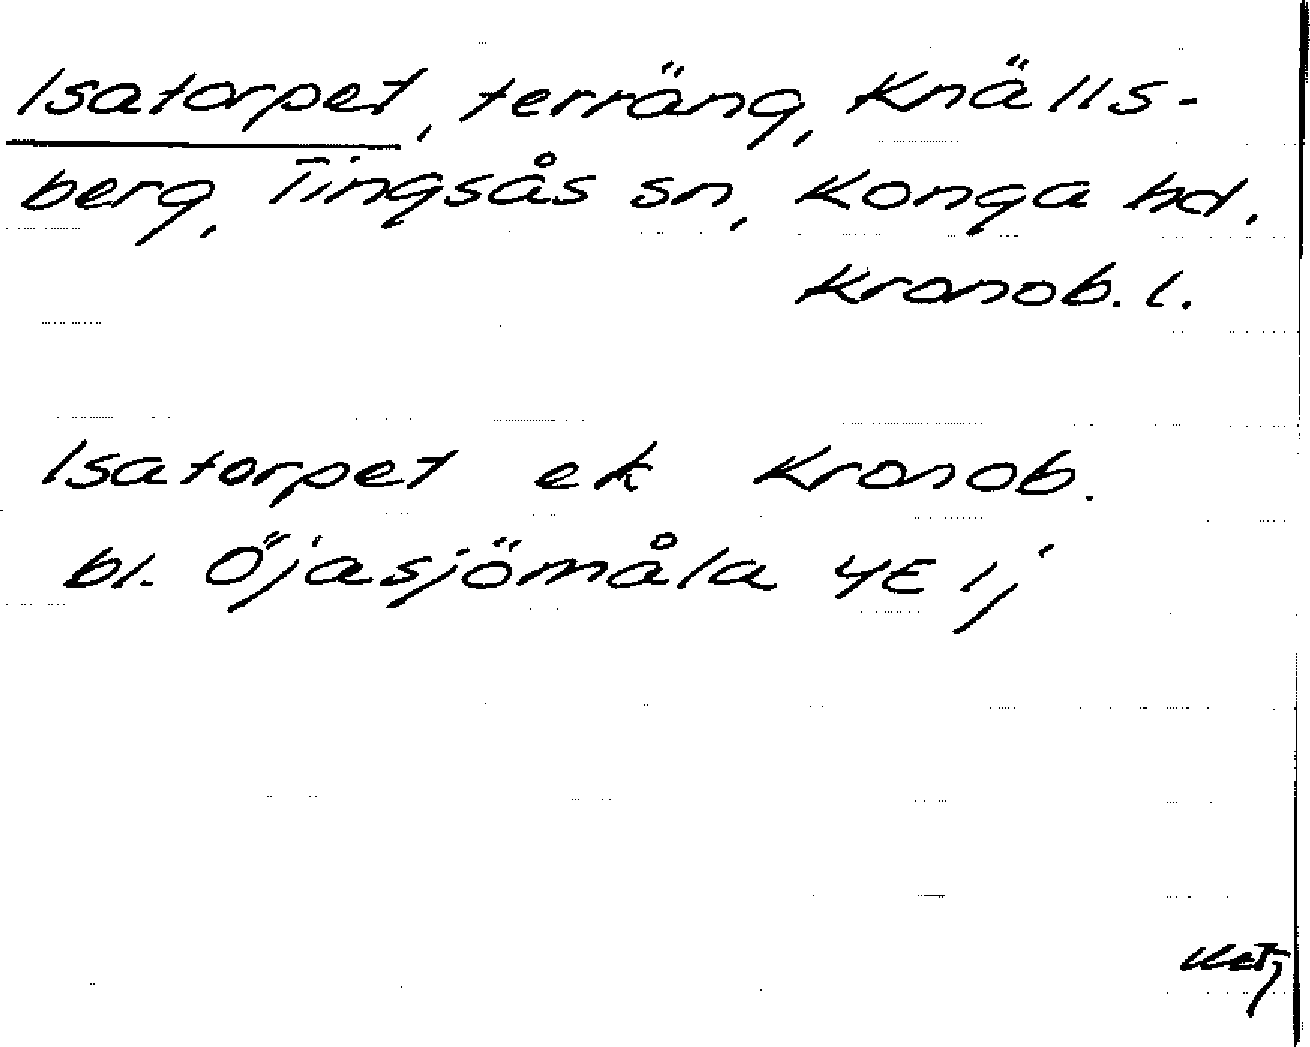 Isatorpet, terräng, Knälls-
berg, Tingsås sn, Konga hd.
Kronob. l.
Isatorpet ek Kronob.
bl. Öjasjömåla 4E 1j